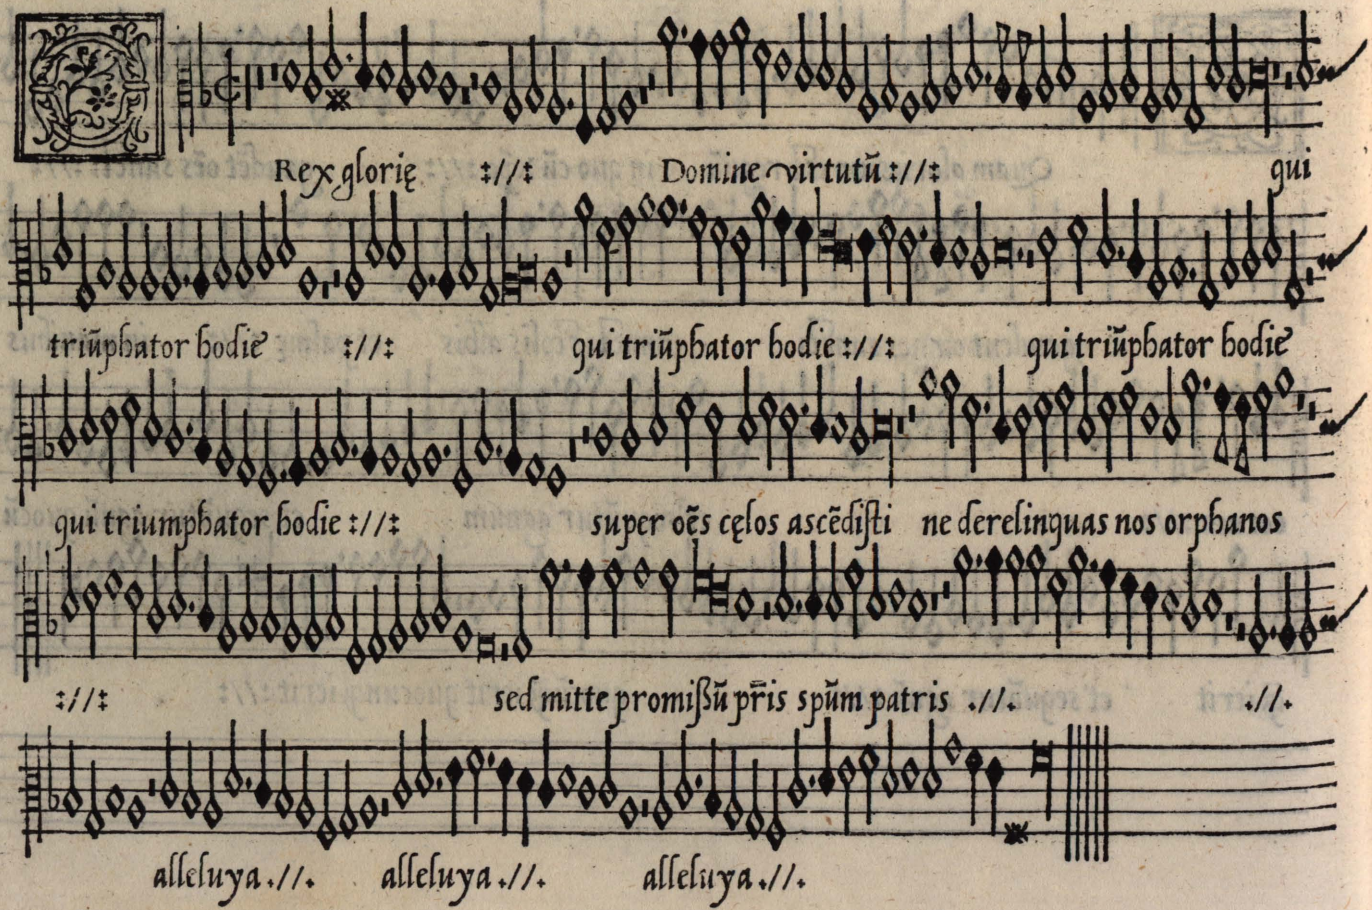 O Rex glorię :://: Domine virtutū :://: qui
triūphator hodie :://: qui triūphator hodie :://: qui triūphator hodie
qui triumphator hodie :://: super oēs cęlos ascēdisti ne derelinquas nos orphanos
:://: sed mitte promißū pr̄is spūm patris .//. .//.
alleluya .//. alleluya .//. alleluya .//.